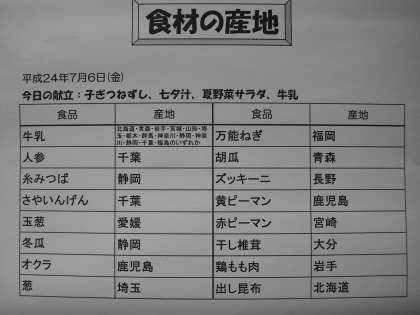 食材の産地
平成24年7月6日(金)
今日の献立：子ぎつねずし、七夕汁、夏野菜サラダ、牛乳
食品 産地 食品 産地
牛乳 北海道・青森・岩手・宮城・山形・埼玉・栃木・群馬・神奈川・静岡・神奈川・静岡・千葉・福島のいずれか 万能ねぎ 福岡
人参 千葉 胡瓜 青森
糸みつば 静岡 ズッキーニ 長野
さやいんげん 千葉 黄ピーマン 鹿児島
玉葱 愛媛 赤ピーマン 宮崎
冬瓜 静岡 干し椎茸 大分
オクラ 鹿児島 鶏もも肉 岩手
葱 埼玉 出し昆布 北海道